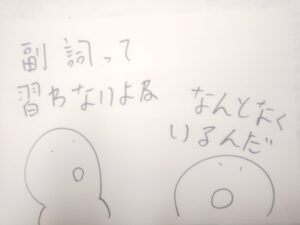 副詞って
習わないよな
なんとなく
いるんだ